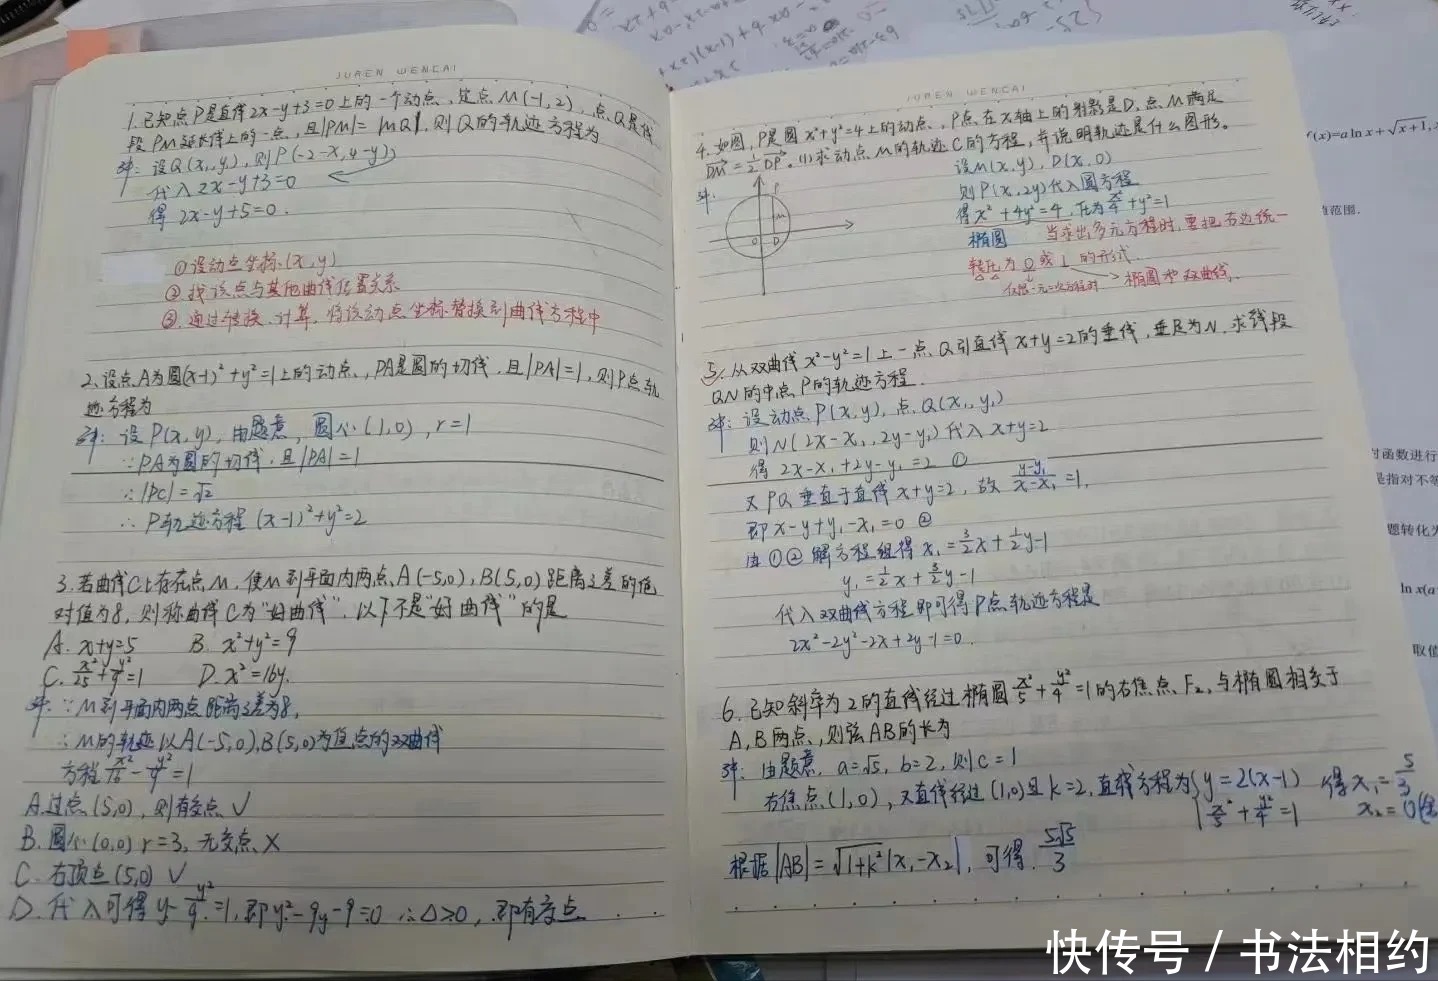 JUREN WENCAI
1.已知点P是直线2x-y+3=0上的一个动点,定点M(-1,2),点Q是线
段PM延长线上的一点,且|PM|=|MQ|,则Q的轨迹方程为
解:设Q(x,y),则P(-2-x,4-y)
代入2x-y+3=0
得2x-y+5=0.
①设动点坐标(x,y)
②找该点与其他曲线位置关系
③通过转换、计算,将该动点坐标替换到曲线方程中
2.设点A为圆(x-1)²+y²=1上的动点,PA是圆的切线,且|PA|=1,则P点轨
迹方程为
解:设P(x,y),由题意,圆心(1,0),r=1
∵PA为圆的切线,且|PA|=1
∴|PC|=√2
∴P轨迹方程(x-1)²+y²=2
3.若曲线C上存在点M,使M到平面内两点A(-5,0),B(5,0)距离之差的绝
对值为8,则称曲线C为“好曲线”.以下不是“好曲线”的是
A. x+y=5 B. x²+y²=9
C. x²/25+y²/9=1 D. x²=16y.
解:∵M到平面内两点距离之差为8,
∴M的轨迹以A(-5,0),B(5,0)为焦点的双曲线
方程x²/16-y²/9=1
A.过点(5,0),则有交点√
B.圆心(0,0) r=3,无交点×
C.右顶点(5,0)√
D.代入可得y-y²/9=1,即y²-9y-9=0 ∴△>0,即有交点
JUREN WENCAI
4.如图,P是圆x²+y²=4上的动点,P点在x轴上的射影是D,点M满足
DM=1/2DP。(1)求动点M的轨迹C的方程,并说明轨迹是什么图形。
解:
P
M
O D
设M(x,y),D(x,0)
则P(x,2y)代入圆方程
得x²+4y²=4,化为x²/4+y²=1
椭圆 当求出多元方程时,要把右边统一
转化为0或1的形式.
仅限一元二次方程时 椭圆和双曲线.
5.从双曲线x²-y²=1上一点Q引直线x+y=2的垂线,垂足为N,求线段
QN的中点P的轨迹方程.
解:设动点P(x,y),点Q(x₁,y₁)
则N(2x-x₁,2y-y₁)代入x+y=2
得2x-x₁+2y-y₁=2 ①
又PQ垂直于直线x+y=2,故(y-y₁)/(x-x₁)=1,
即x-y+y₁-x₁=0 ②
由①②解方程组得x₁=3/2x+1/2y-1
y₁=1/2x+3/2y-1
代入双曲线方程即可得P点轨迹方程是
2x²-2y²-2x+2y-1=0.
6.已知斜率为2的直线经过椭圆x²/5+y²/4=1的右焦点F₂,与椭圆相交于
A,B两点,则弦AB的长为
解:由题意,a=√5,b=2,则c=1
右焦点(1,0),又直线经过(1,0)且k=2,直线方程为{y=2(x-1) 得x₁=5/3
x²/5+y²/4=1 x₂=0
根据|AB|=√(1+k²)|x₁-x₂|,可得5√5/3
(x)=a ln x+√(x+1),x
值范围.
对函数进行
是指对不等
题转化为
ln x(a
取值
快传号/书法相约